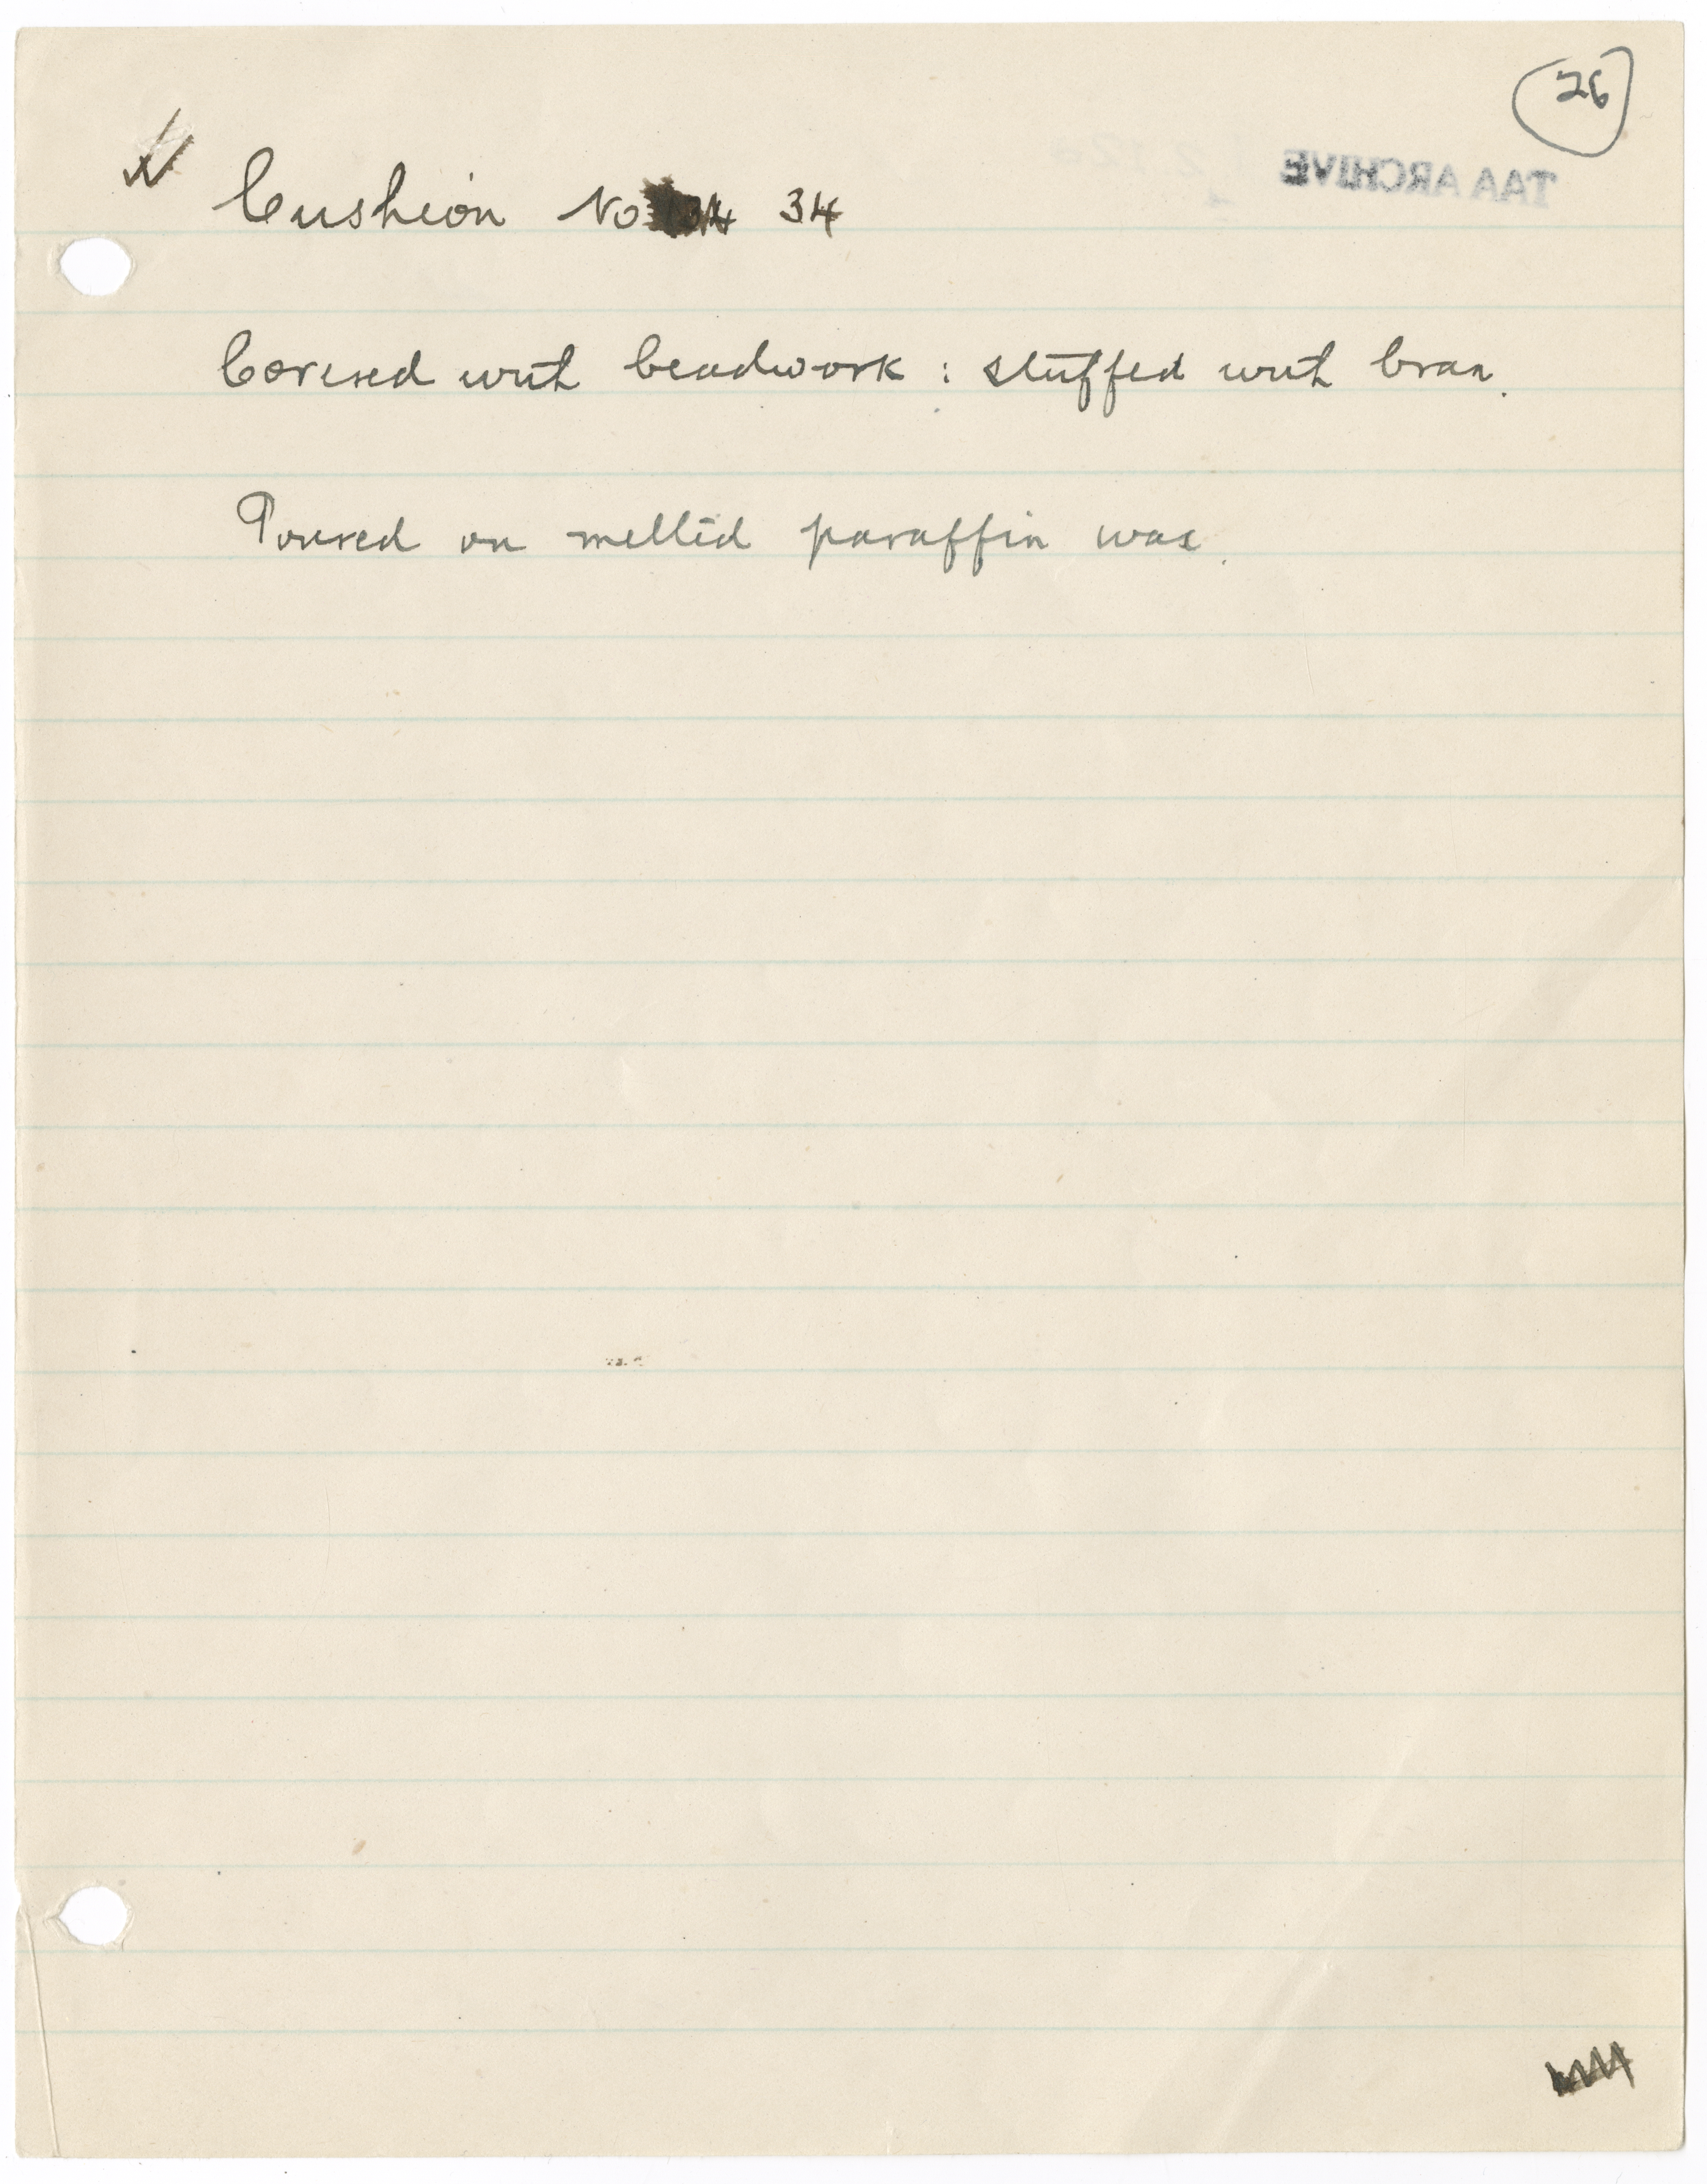 26
TAA ARCHIVE
Cushion No 34
Covered with beadwork : stuffed with bran.
Poured on melted paraffin wax.